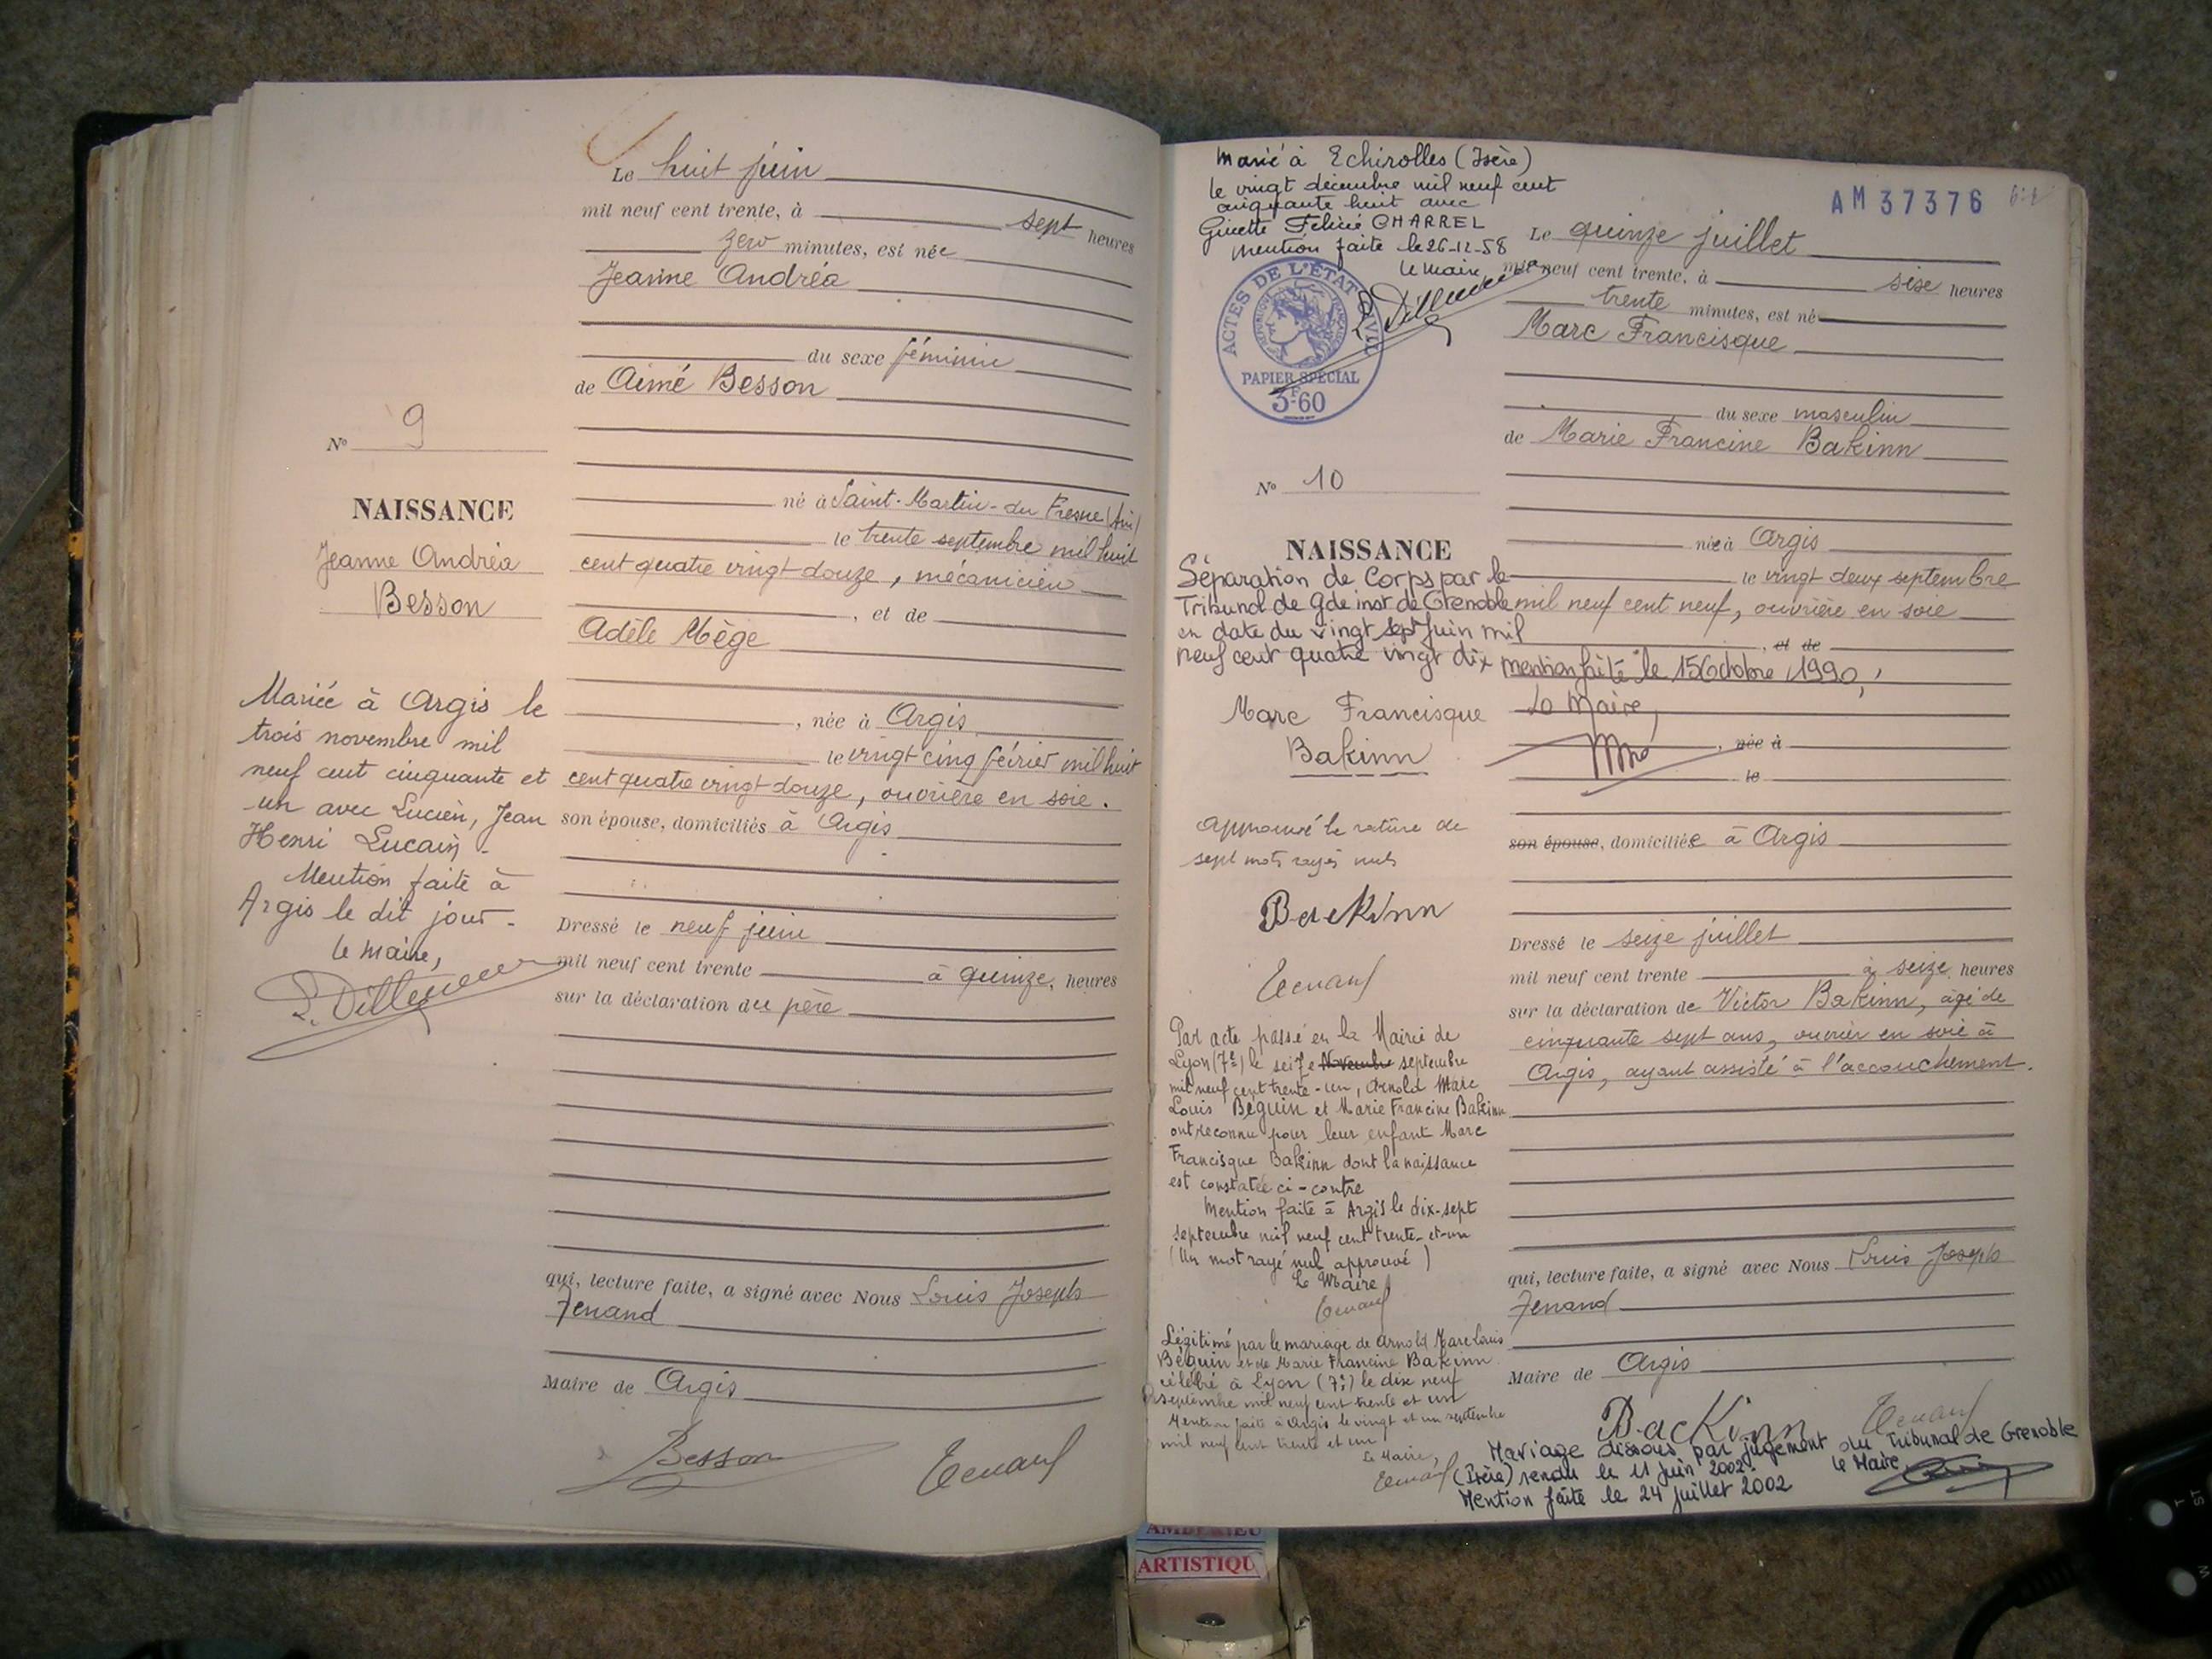 Le huit juin
mil neuf cent trente, à sept heures
zero minutes, est née
Jeanne Andréa
du sexe féminin
de Aimé Besson
né à Saint-Martin-du Fresne (Ain)
le trente septembre mil huit
cent quatre vingt douze, mécanicien
, et de
Adèle Mège
, née à Argis
le vingt cinq février mil huit
cent quatre vingt douze, ouvrière en soie.
son épouse, domiciliés à Argis
Dressé le neuf juin
mil neuf cent trente à quinze heures
sur la déclaration du père
qui, lecture faite, a signé avec Nous Louis Joseph
Tenand
Maire de Argis
Besson
Tenand
No 9
NAISSANCE
Jeanne Andréa
Besson
Mariée à Argis le
trois novembre mil
neuf cent cinquante et
un avec Lucien, Jean
Henri Lucain -
Mention faite à
Argis le dit jour -
le maire,
Marié à Echirolles (Isère)
le vingt décembre mil neuf cent
cinquante huit avec
Ginette Félicie CHARREL
mention faite le 26-12-58
le maire
ACTES DE L'ÉTAT CIVIL
PAPIER SPÉCIAL
3F60
No 10
NAISSANCE
Séparation de Corps par le
Tribunal de gde inst de Grenoble
en date du vingt sept juin mil
neuf cent quatre vingt dix mention faite le 15 Octobre 1990,
Le Maire,
Marc Francisque
Bakinn
approuvé la rature de
sept mots rayés nuls
Backinn
Tenand
Par acte passé en la Mairie de
Lyon (7e) le seize Novembre septembre
mil neuf cent trente-un, Arnold Marc
Louis Béguin et Marie Francine Bakinn
ont reconnu pour leur enfant Marc
Francisque Bakinn dont la naissance
est constatée ci-contre
Mention faite à Argis le dix-sept
septembre mil neuf cent trente-et-un
(Un mot rayé nul approuvé)
Le Maire
Tenand
Légitimé par le mariage de Arnold Marc Louis
Béguin et de Marie Francine Bakinn
célébré à Lyon (7e) le dix neuf
septembre mil neuf cent trente et un
Mention faite à Argis le vingt et un septembre
mil neuf cent trente et un
Le Maire,
Tenand
AM 37376
Le quinze juillet
mil neuf cent trente, à sise heures
trente minutes, est né
Marc Francisque
du sexe masculin
de Marie Francine Bakinn
née à Argis
le vingt deux septembre
mil neuf cent neuf, ouvrière en soie
, et de
, née à
le
son épouse, domiciliée à Argis
Dressé le seize juillet
mil neuf cent trente à seize heures
sur la déclaration de Victor Bakinn, âgé de
cinquante sept ans, ouvrier en soie à
Argis, ayant assisté à l'accouchement.
qui, lecture faite, a signé avec Nous Louis Joseph
Tenand
Maire de Argis
Backinn
Tenand
Mariage dissous par jugement du Tribunal de Grenoble
(Isère) rendu le 11 juin 2002. le Maire
Mention faite le 24 juillet 2002
ARTISTIQU